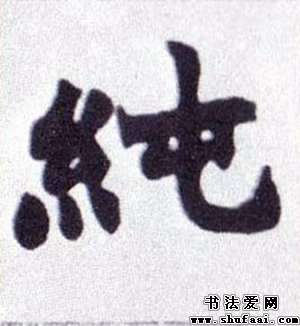 純
书法爱网
www.shufaai.com